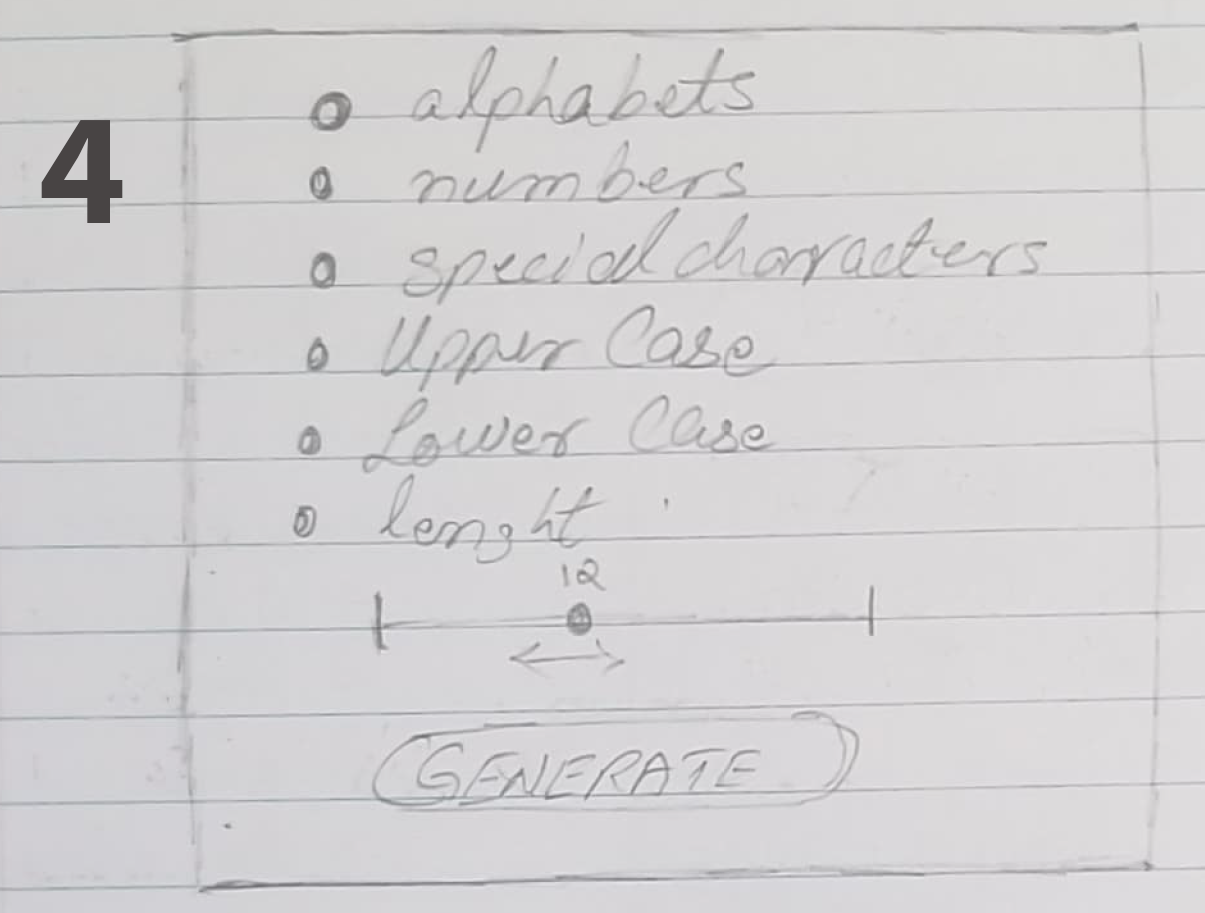 4
alphabets
numbers
special charracters
Upper Case
Lower Case
lenght
12
GENERATE